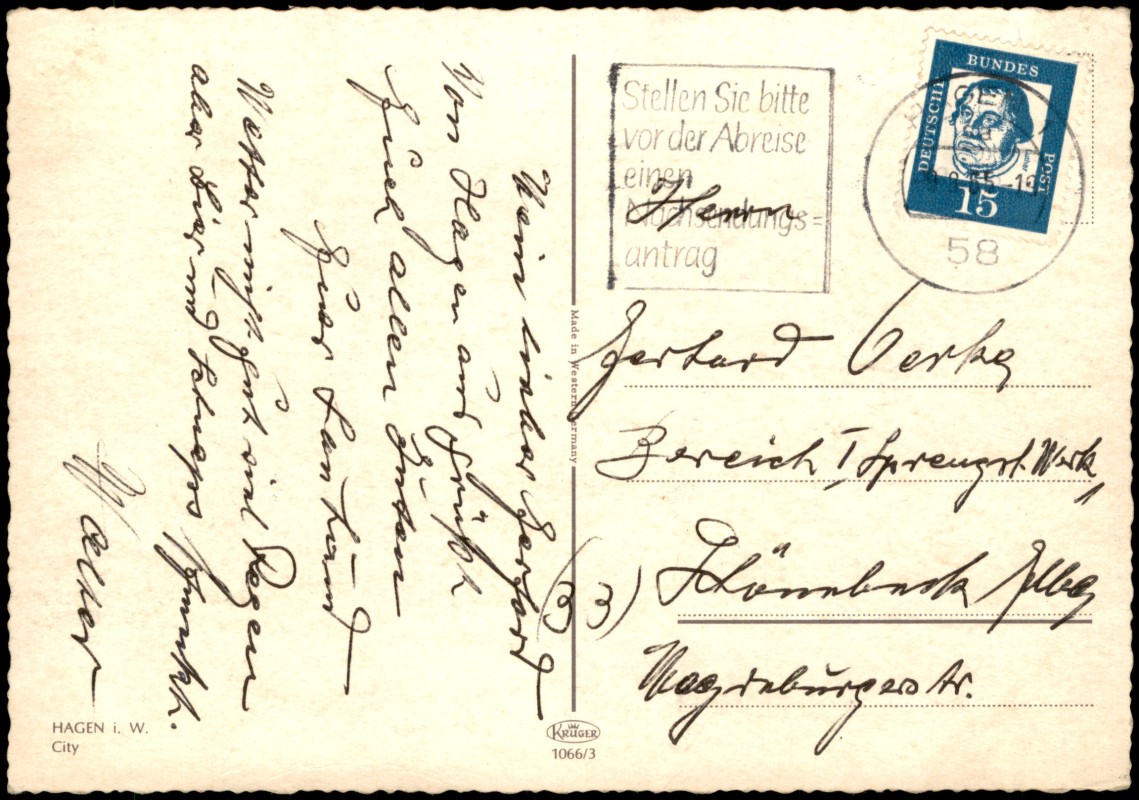 Mein lieber Gerhard
Von Hagen aus grüßt
Euch allen Guten
Euer Tantund
Wetter nicht gut viel Regen
aber Bier und Schnaps schmeckt.
Walter
HAGEN i. W.
City
Made in Western Germany
KRÜGER
1066/3
Stellen Sie bitte
vor der Abreise
einen
Nachsendungs=
antrag
DEUTSCHE BUNDES POST
15
HAGEN
58
Herrn
Gerhard
Bereich I Sprengst. Werk
(33) Schönebeck / Elbe
Magdeburgerstr.